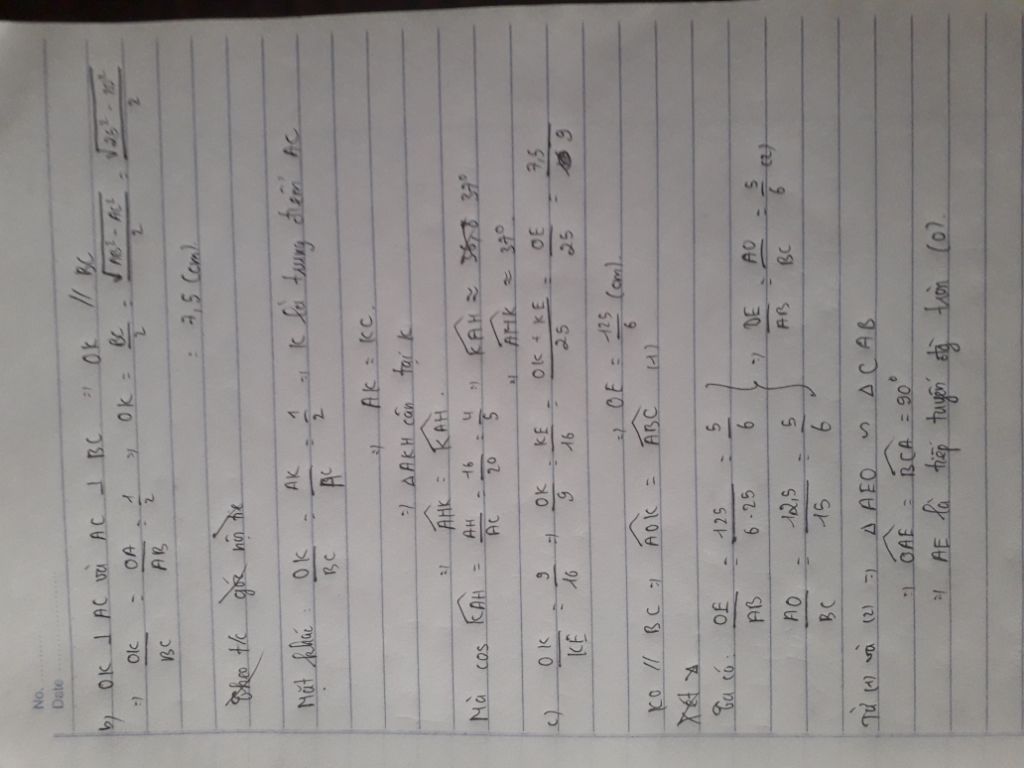 No.
Date
b) OK ⊥ AC và AC ⊥ BC ⇒ OK // BC
⇒ OK/BC = OA/AB = 1/2 ⇒ OK = BC/2 = √(AB² - AC²)/2 = √(25² - 20²)/2
= 7,5 (cm)
Theo t/c góc nội
Mặt khác: OK/BC = AK/AC = 1/2 ⇒ K là trung điểm AC
⇒ AK = KC
⇒ △AKH cân tại K
⇒ AHK = KAH.
Mà cos KAH = AH/AC = 16/20 = 4/5 ⇒ KAH ≈ 37°
⇒ AHK ≈ 37°
c) OK/KE = 9/16 ⇒ OK/9 = KE/16 = OK + KE/25 = OE/25 = 7,5/9
⇒ OE = 125/6 (cm)
KO // BC ⇒ AOK = ABC (1)
Xét △
Ta có: OE/AB = 125/6·25 = 5/6
AO/BC = 12,5/15 = 5/6 } ⇒ OE/AB = AO/BC = 5/6 (2)
Từ (1) và (2) ⇒ △AEO ∽ △CAB
⇒ OAE = BCA = 90°
⇒ AE là tiếp tuyến của (O).